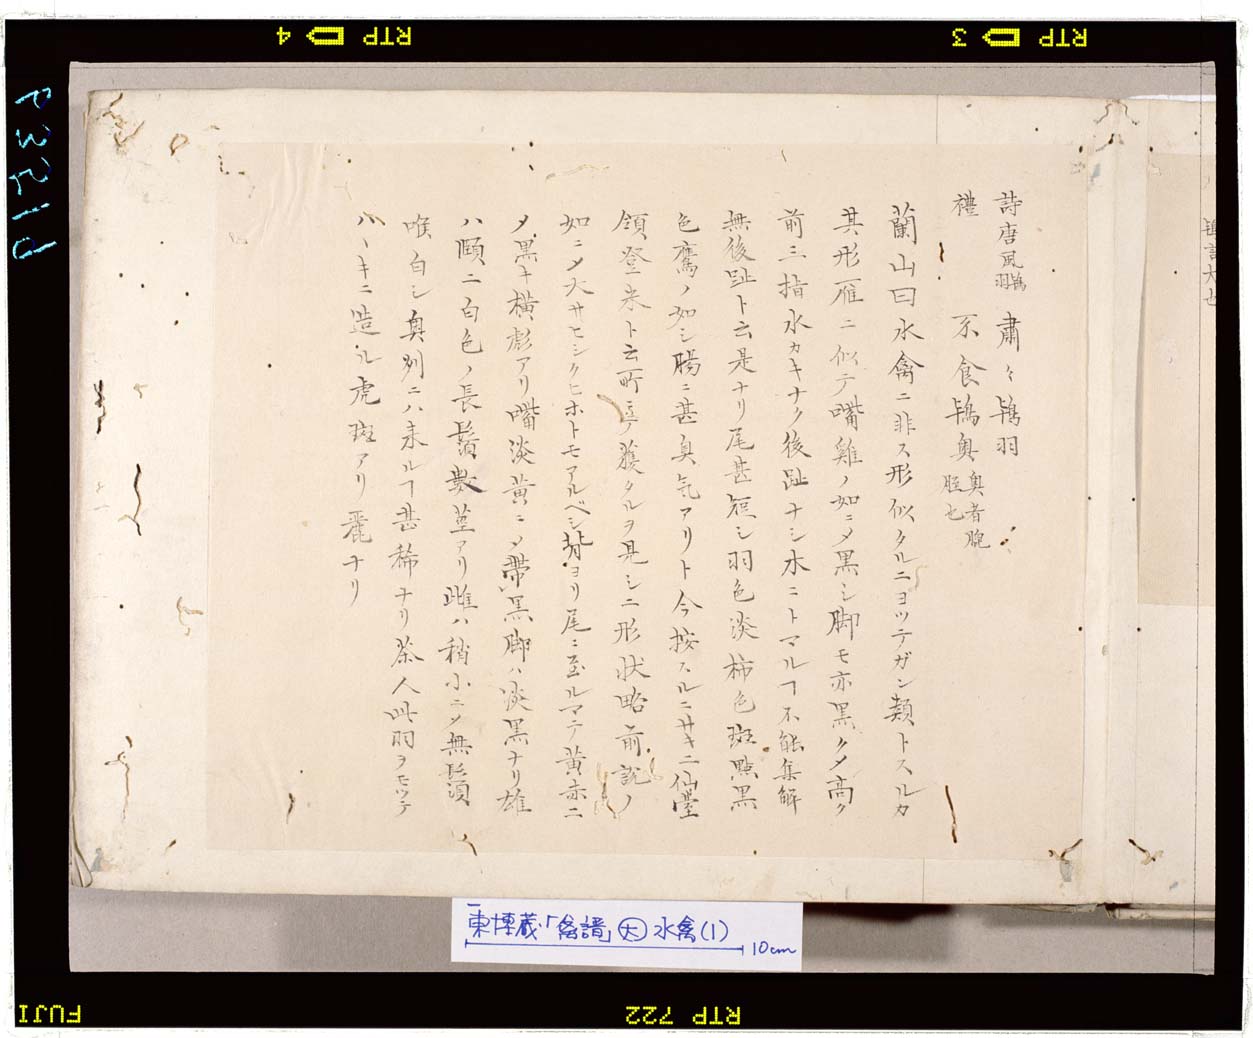 詩唐風鴇羽 肅〻鴇羽
禮 不食鴇奥 奥者脾胵也
蘭山曰水禽ニ非ス形似タルニヨツテガン類トスルカ
其形雁ニ似テ嘴雞ノ如ニメ黒シ脚モ亦黒クメ高ク
前三指水カキナク後趾ナシ木ニトマルヿ不能集解
無後趾ト云是ナリ尾甚短シ羽色淡柿色斑點黒
色鷹ノ如シ腸ニ甚臭気アリト今按スルニサキニ仙臺
領登米ト云町ニテ獲タルヲ見シニ形状略前説ノ
如ニメ大サヒシクヒホトモアルベシ背ヨリ尾ニ至ルマテ黄赤ニ
メ黒キ横彪アリ嘴淡黄ニメ帯黒脚ハ淡黒ナリ雄
ハ頤ニ白色ノ長鬚數莖アリ雌ハ稍小ニメ無鬚頷
喉白シ奥列ニハ来ルヿ甚稀ナリ茶人此羽ヲモツテ
ハヽキニ造ル虎斑アリ麗ナリ
東博蔵「禽譜」大 水禽(1)
10cm
RTP 4
RTP 3
P3210
FUJI
RTP 722